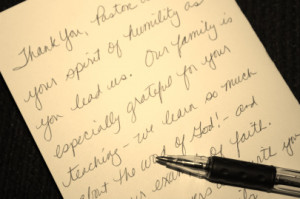 Thank You, Pastor
your spirit of humility as
you lead us. Our family is
especially grateful for your
teaching - we learn so much
about the word of God! - and
your example of faith.